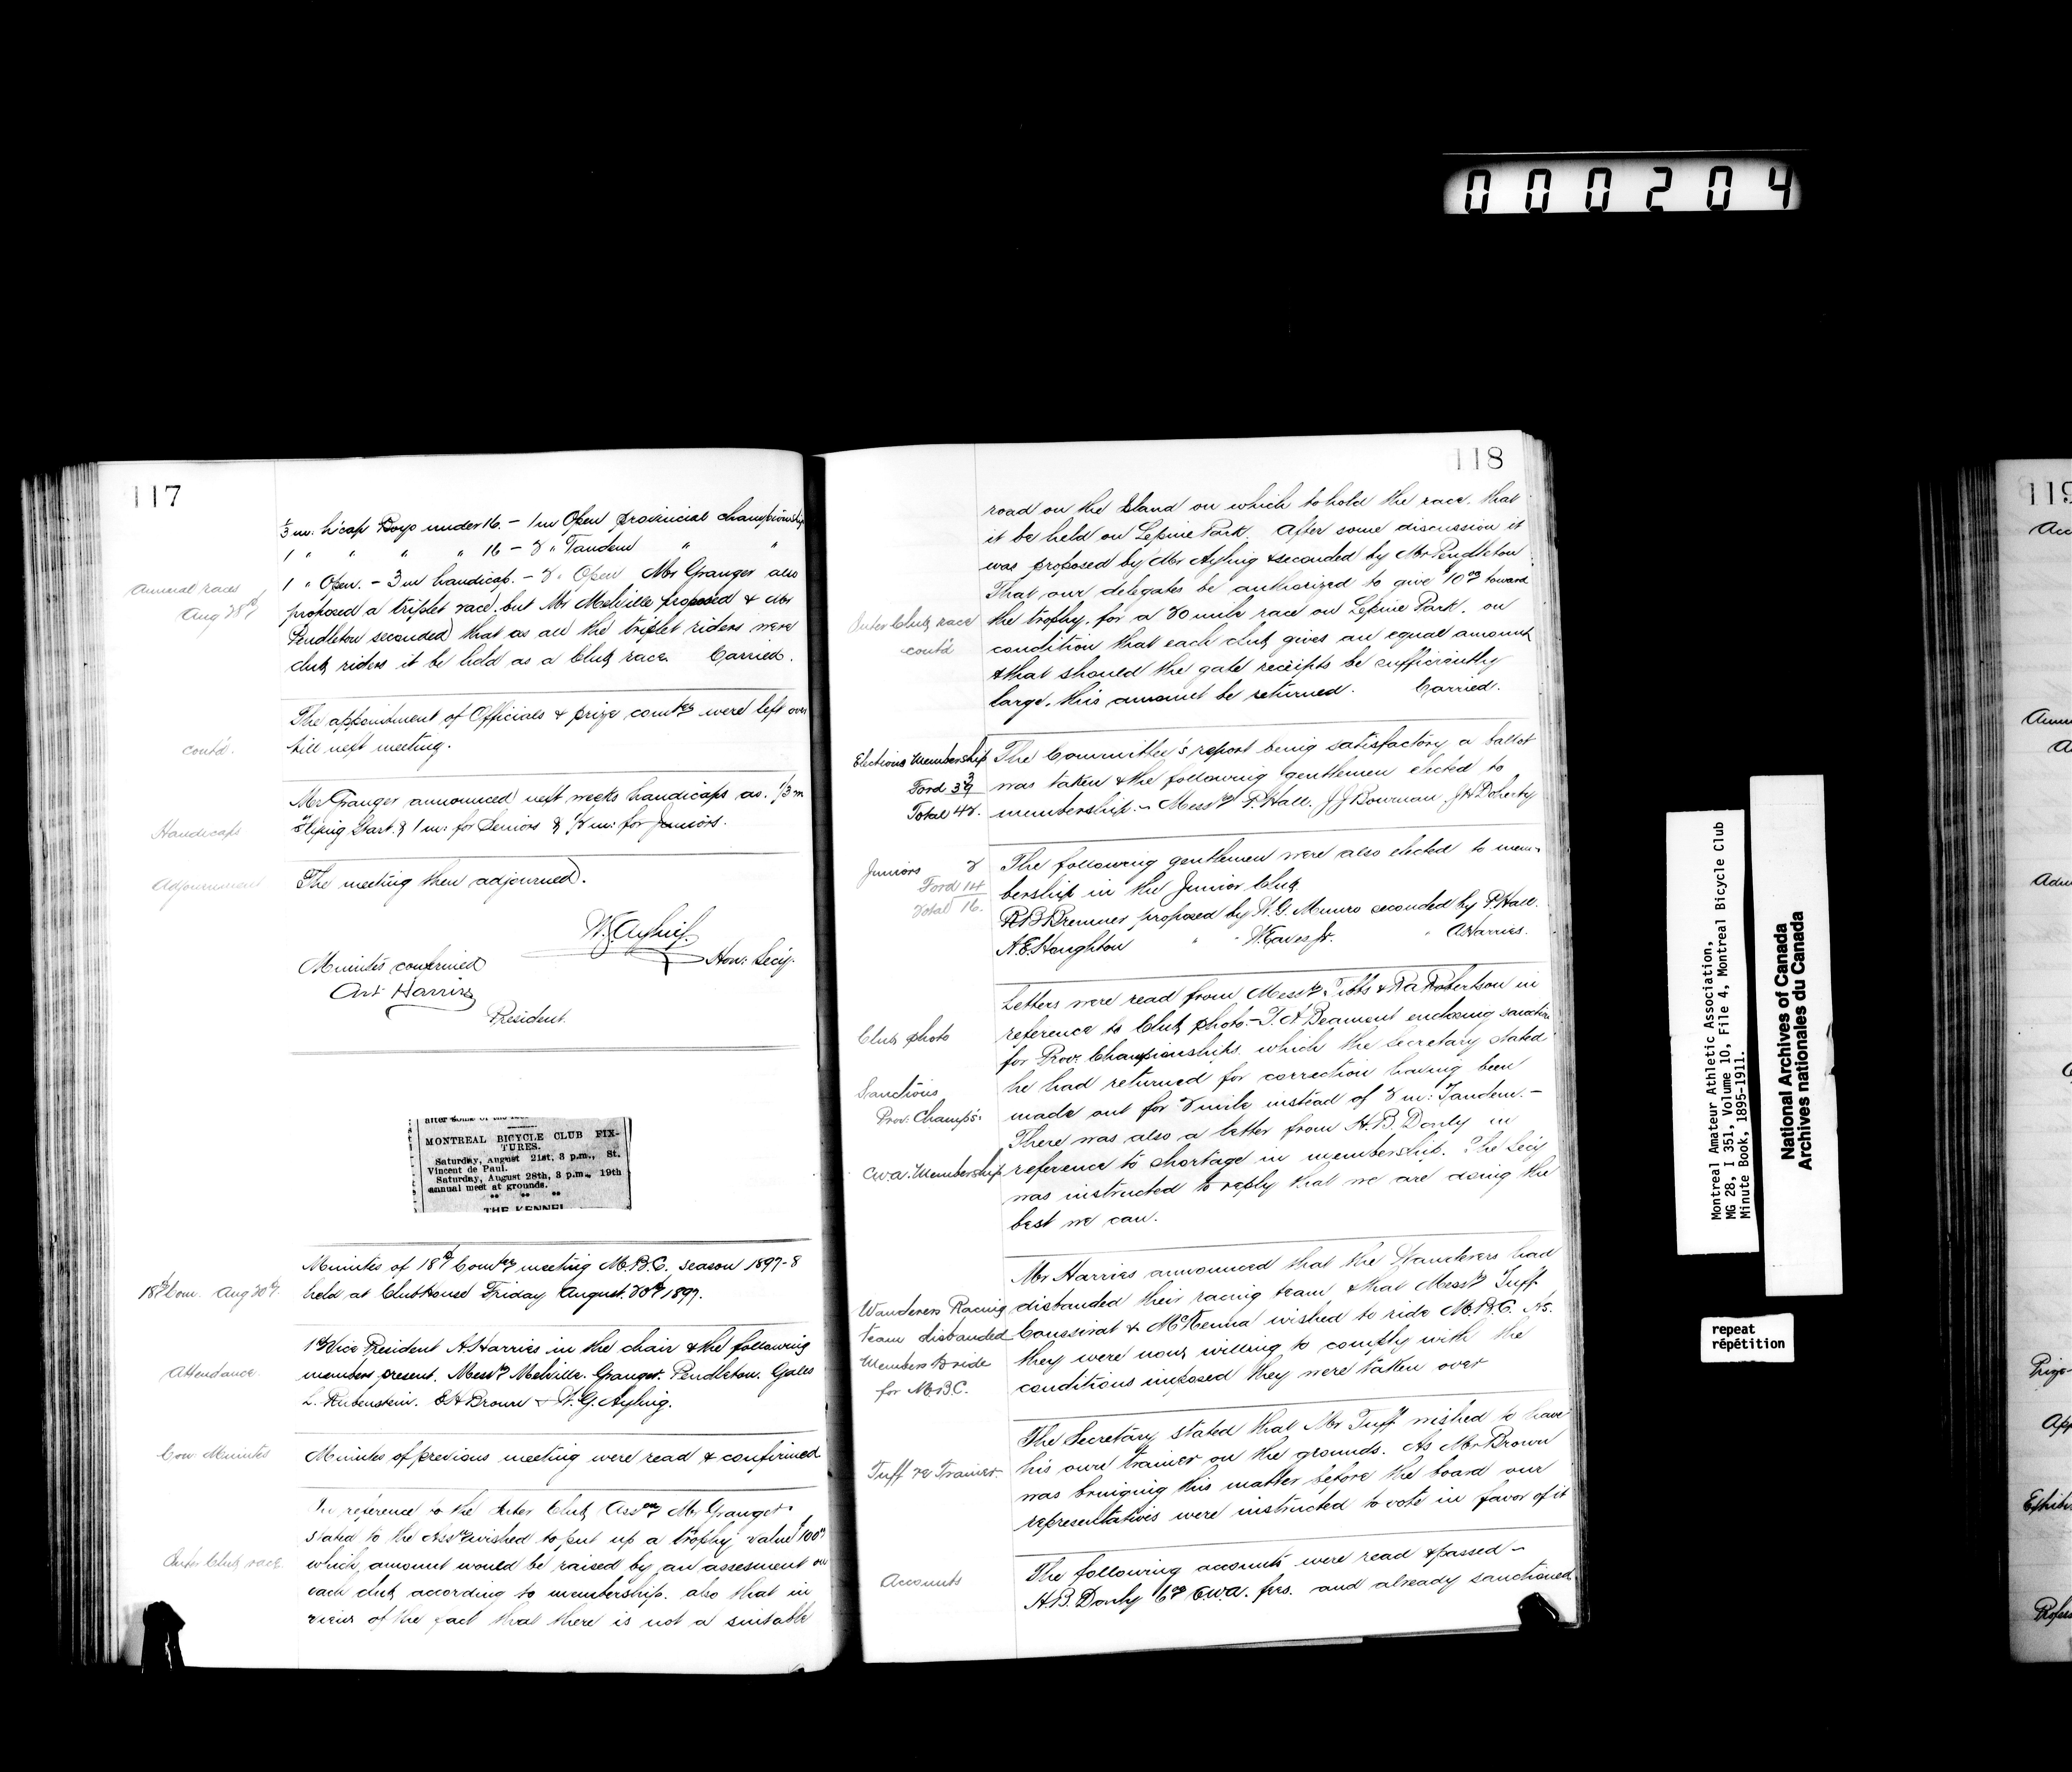 000204
117
1/3 m. h'cap Boys under 16. – 1 m Open provincial championship
1 " " " " 16 – 2 " Tandem " "
1 " Open. – 3 m handicap. – 2 " Open Mr Granger also
Annual races
Aug 28th
proposed a triplet race, but Mr Melville proposed & Mr
Pendleton seconded that as all the triplet riders were
club riders it be held as a Club race. Carried.
The appointment of Officials & prize comtee were left over
cont'd.
till next meeting.
Mr Granger announced next weeks handicaps as. 1/3 m
Handicaps
Flying Start. & 1 m: for Seniors & 1/2 m: for Juniors.
Adjournment
The meeting then adjourned.
W. G. Ayling.
Hon: Secy.
Minutes confirmed
Art Harries
President.
MONTREAL BICYCLE CLUB FIX-
TURES.
Saturday, August 21st, 3 p.m., St.
Vincent de Paul.
Saturday, August 28th, 3 p.m., 19th
annual meet at grounds.
THE KENNEL
18th Com. Aug 20th.
Minutes of 18th Comtee meeting M.B.C. season 1897-8
held at Club House Friday August 20th 1897.
Attendance.
1st Vice President A. Harries in the chair & the following
members present. Messrs Melville. Granger. Pendleton. Gales
L. Rubenstein. E H Brown & W. G. Ayling.
Con Minutes
Minutes of previous meeting were read & confirmed
In reference to the Inter Club Assn Mr Granger
stated to the Assn wished to put up a trophy value $100.00
Inter Club race
which amount would be raised by an assesment on
each club according to membership. also that in
view of the fact that there is not a suitable
118
road on the Island on which to hold the race. that
it be held on Lepine Park. After some discussion it
was proposed by Mr Ayling & seconded by Mr Pendleton
That our delegates be authorized to give $10.00 toward
Inter Club race
cont'd
the trophy. for a 20 mile race on Lepine Park. on
condition that each club gives an equal amount
& that should the gate receipts be sufficiently
large. this amount be returned. Carried.
Elections Membership
3
Ford 39
Total 42.
The Committee's report being satisfactory a ballot
was taken & the following gentlemen elected to
membership:– Messrs P. Hall. J J Bowman. J H Doherty
Juniors 2
Ford 14
Total 16.
The following gentlemen were also elected to mem-
bership in the Junior Club
R B Bremner proposed by W. G. Munro seconded by P. Hall.
A. E. Houghton " " W. Eaves Jr. " A Harries.
Club photo
Letters were read from Messrs Tibbs & R A Robertson in
reference to Club photo. – T. A Beament enclosing sanction
for Prov: Championships. which the Secretary stated
Sanctions
Prov: Champs:
he had returned for correction having been
made out for 2 mile instead of 2 m: Tandem. –
There was also a letter from H. B. Donly in
C.W.A. Membership
reference to shortage in membership. The Secy
was instructed to reply that we are doing the
best we can.
Mr Harries announced that the Wanderers had
Wanderers Racing
team disbanded
Members to ride
for M.B.C.
disbanded their racing team & that Messrs Tuff
Coussirat & McKenna wished to ride M.B.C. As
they were now willing to comply with the
conditions imposed they were taken over
Tuff re Trainer.
The Secretary stated that Mr Tuff wished to have
his own trainer on the grounds. As Mr Brown
was bringing this matter before the board our
representatives were instructed to vote in favor of it
Accounts
The following accounts were read & passed –
H. B. Donly C.W.A. fees. and already sanctioned
Montreal Amateur Athletic Association,
MG 28, I 351, Volume 10, File 4, Montreal Bicycle Club
Minute Book, 1895-1911.
National Archives of Canada
Archives nationales du Canada
repeat
répétition
119